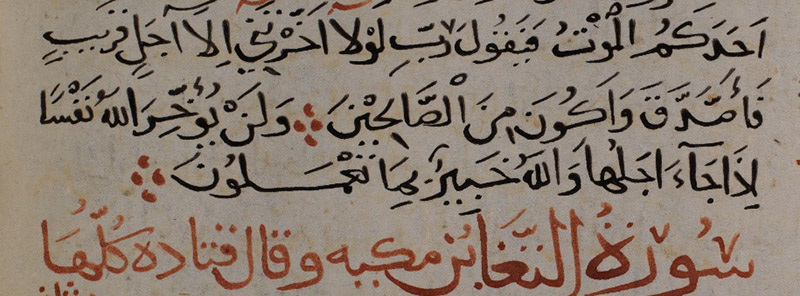 اَحَدَكُمُ الْمَوْتُ فَيَقُولَ رَبِّ لَوْلَا اَخَّرْتَنِي اِلَى اَجَلٍ قَرِيبٍ
فَاَصَّدَّقَ وَاَكُونَ مِنَ الْصَّالِحِيْنَ وَلَنْ يُؤَخِّرَ اللهُ نَفْسًا
اِذَا جَآءَ اَجَلُهَا وَاللهُ خَبِيرٌ بِمَا تَعْمَلُونَ
سُوْرَةُ التَّغَابُنِ مكيه وقال قتاده كُلُّهَا